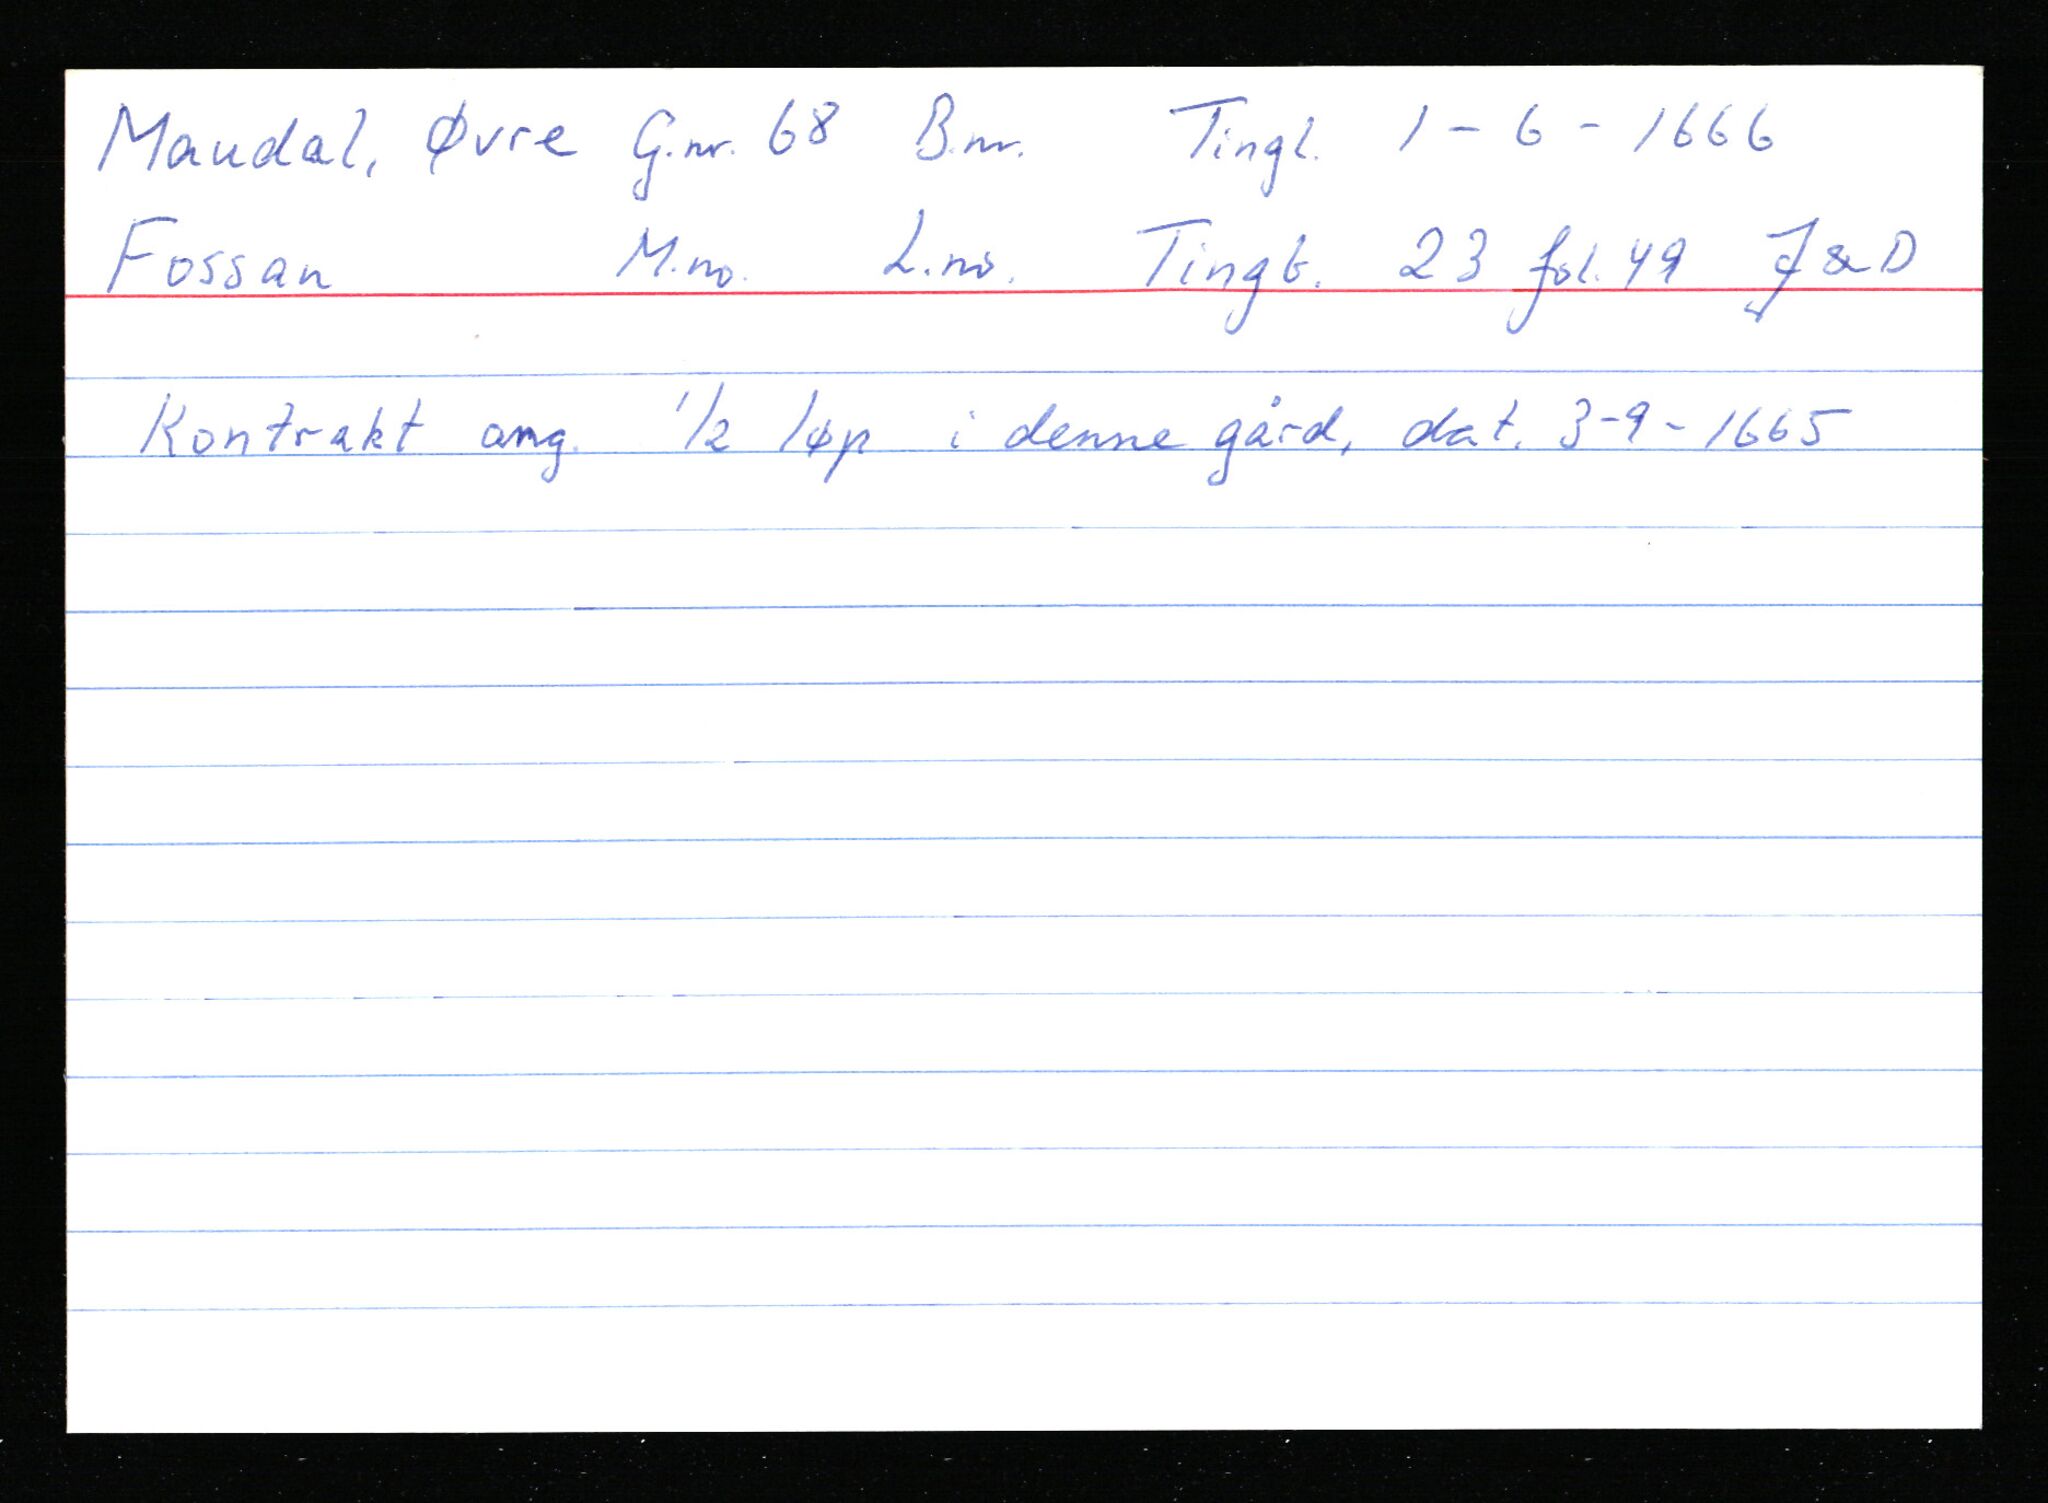 Maudal, Øvre G.nr. 68 B.nr. Tingl. 1-6-1666
Fossan M.no. L.no. Tingb. 23 fol. 49 J & D
Kontrakt ang. 1/2 løp i denne gård, dat. 3-9-1665